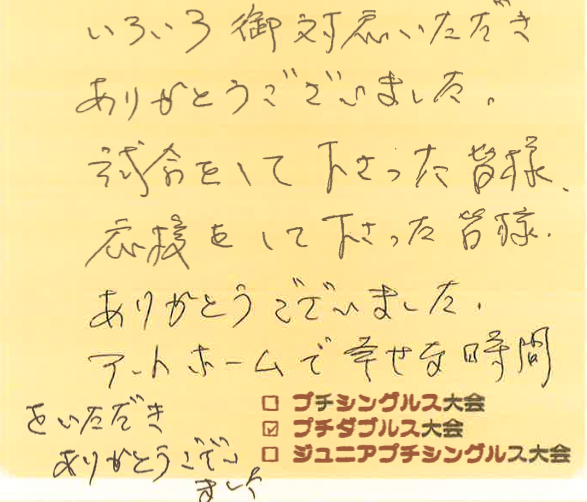 いろいろ御対応いただき
ありがとうございました。
試合をして下さった皆様、
応援をして下さった皆様.
ありがとうございました.
アットホームで幸せな時間
をいただき
ありがとうござい
ました
□ プチシングルス大会
☑ プチダブルス大会
□ ジュニアプチシングルス大会